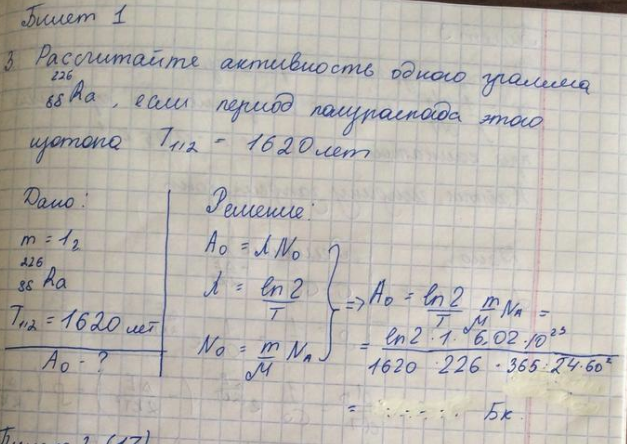 Билет 1
3. Рассчитайте активность одного грамма
²²⁶₈₈Ra, если период полураспада этого
изотопа T₁/₂ = 1620 лет
Дано:
m = 1г
²²⁶₈₈Ra
T₁/₂ = 1620 лет
A₀ - ?
Решение:
A₀ = λN₀
λ = ln2/T
N₀ = m/M Nₐ
=> A₀ = ln2/T m/M Nₐ =
= ln2 · 1 · 6,02 · 10²³ / 1620 · 226 · 365 · 24 · 60²
= Бк.